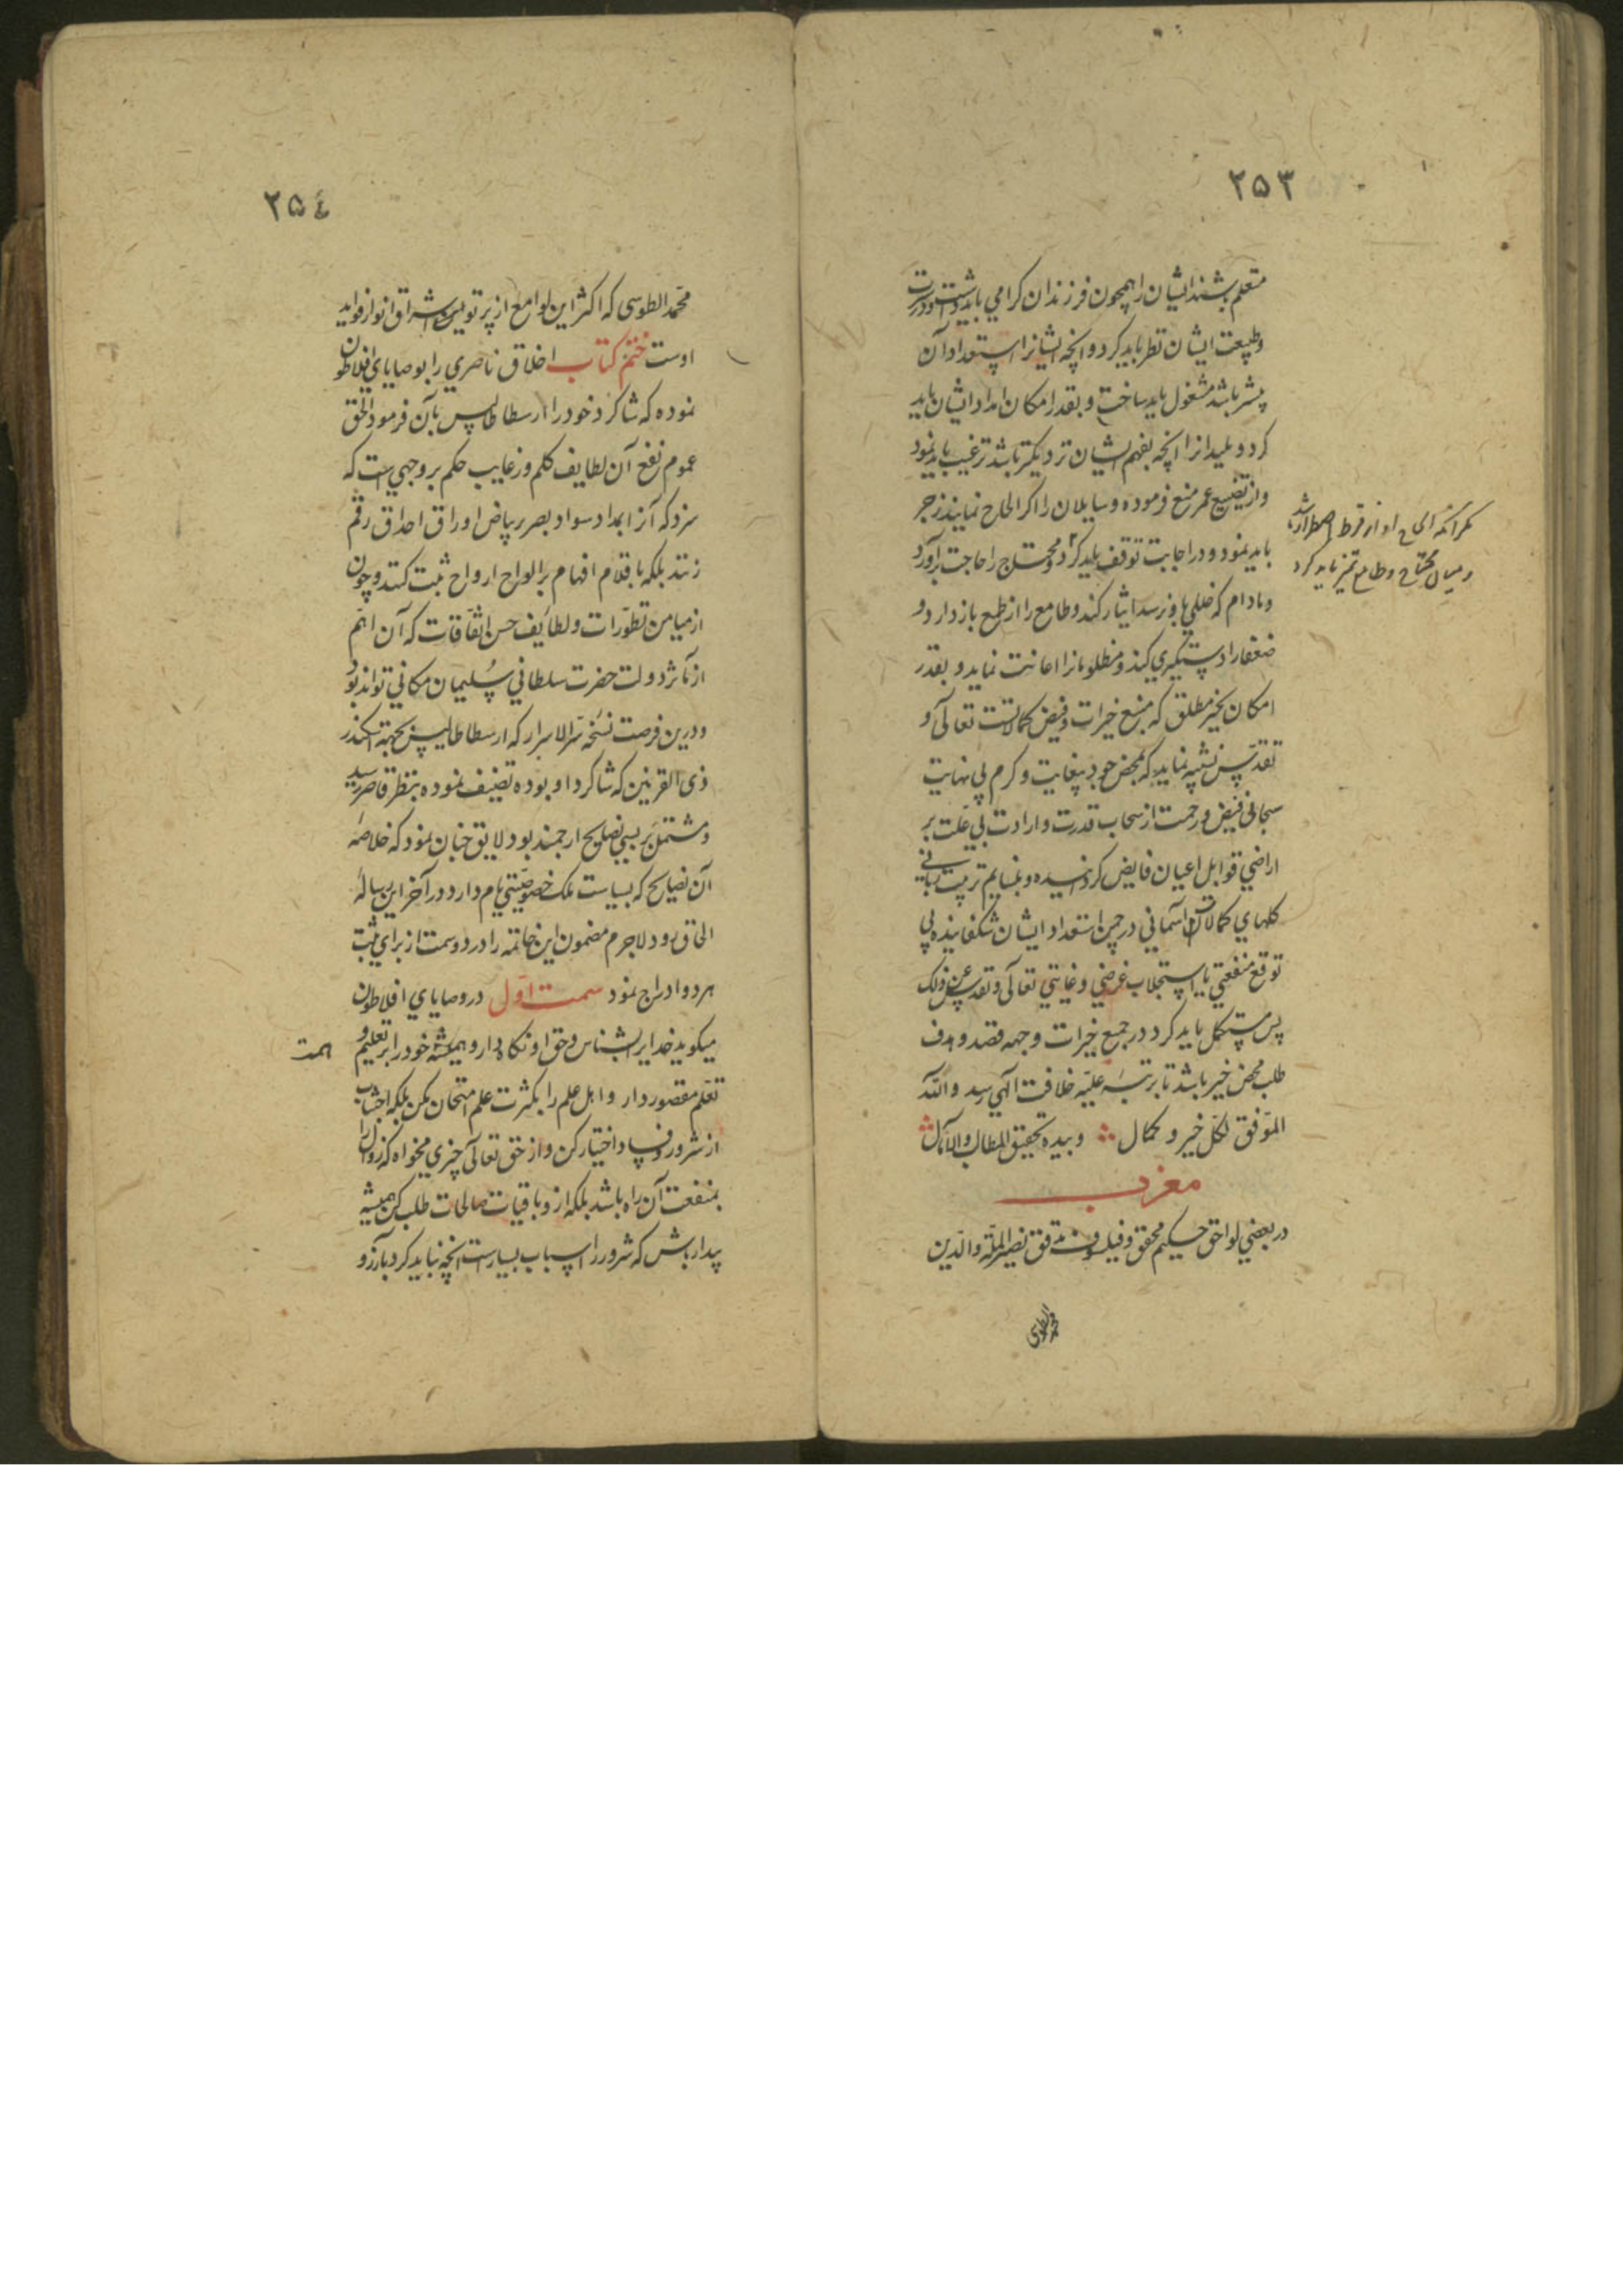 ۲۵۳
متعلم باشند ایشان را همچون فرزندان کرامی باید داشت و در سیرت
وطبیعت ایشان نظر باید کرد و انچه ایشانرا استعداد آن
بیشتر باشد مشغول باید ساخت و بقدر امکان امداد ایشان باید
کرد و بلید انرا انچه بفهم ایشان نزدیکتر باشد ترغیب باید نمود
و از تضییع عمر منع فرموده و سایلان را اکر الحاح نمایند زجر
باید نمود و در اجابت توقف باید کرد و محتاج را حاجت برآورد
مکر انکه الحاح او از فرط اضطرار باشد
و میان محتاج و طامع تمیز باید کرد
و مادام که خللی باو نرسد ایثار کند و طامع را از طمع باز دارد و
ضعفا را دستکیری کند و مظلومانرا اعانت نماید و بقدر
امکان بخیر مطلق که منبع خیرات و فیض کمالاتست تعالی و
تقدس تشبه نماید که بمحض جود بیغایت و کرم بی نهایت
سجال فیض و رحمت از سحاب قدرت و ارادت بی علت بر
اراضی قوابل اعیان فایض کردانیده و بنسایم تربیت ربانی
کلهای کمالات آسمانی در چمن استعداد ایشان شکفانیده بی
توقع منفعتی یا استجلاب غرضی و غایتی تعالی و تقدس عن ذلک
پس مستکمل باید کرد در جمیع خیرات وجهه قصد و هدف
طلب محض خیر باشد تا برتبه علیه خلافت الهی رسد والله
الموفق لکل خیر و کمال وبیده تحقیق المطالب والآمال
مغرب
در بعضی لواحق حکیم محقق و فیلسوف مدقق نصیر الملة والدین
محمد الطوسی
۲۵٤
محمد الطوسی که اکثر این لوامع از پرتو اشراق انوار فواید
اوست ختم کتاب اخلاق ناصری را بوصایای افلاطون
نموده که شاکرد خود را ارسطاطالیس بآن فرموده الحق
عموم نفع آن لطایف کلم و زغایب حکم بر وجهی است که
سزد که آنرا بمداد سواد بصر بر بیاض اوراق احداق رقم
زنند بلکه باقلام افهام بر الواح ارواح ثبت کنند و چون
از میامن تطورات و لطایف حسن اتفاقات که آن اتم
از مآثر دولت حضرت سلطانی سلیمان مکانی تواند بود
و درین فرصت نسخه سر الاسرار که ارسطاطالیس بجهة اسکندر
ذی القرنین که شاکرد او بوده تصنیف نموده بنظر قاصر رسید
و مشتمل بر بسی نصایح ارجمند بود لایق چنان نمود که خلاصه
آن نصایح که بسیاست ملک خصوصیتی تام دارد در آخر این رساله
الحاق رود لاجرم مضمون این خاتمه را در دو سمت از برای ثبت
هر دو ادراج نمود سمت اول در وصایای افلاطون
میکوید خدایرا بشناس و حق او نکاه دار و همیشه خود را بر تعلیم و
همت
تعلم مقصور دار و اهل علم را بکثرت علم امتحان مکن بلکه اجتناب
از شرور و فساد اختیار کن و از حق تعالی چیزی مخواه که زوال را
بمنفعت آن راه باشد بلکه ازو باقیات صالحات طلب کن همیشه
بیدار باش که شرور را اسباب بسیارست انچه نباید کرد بآرزو